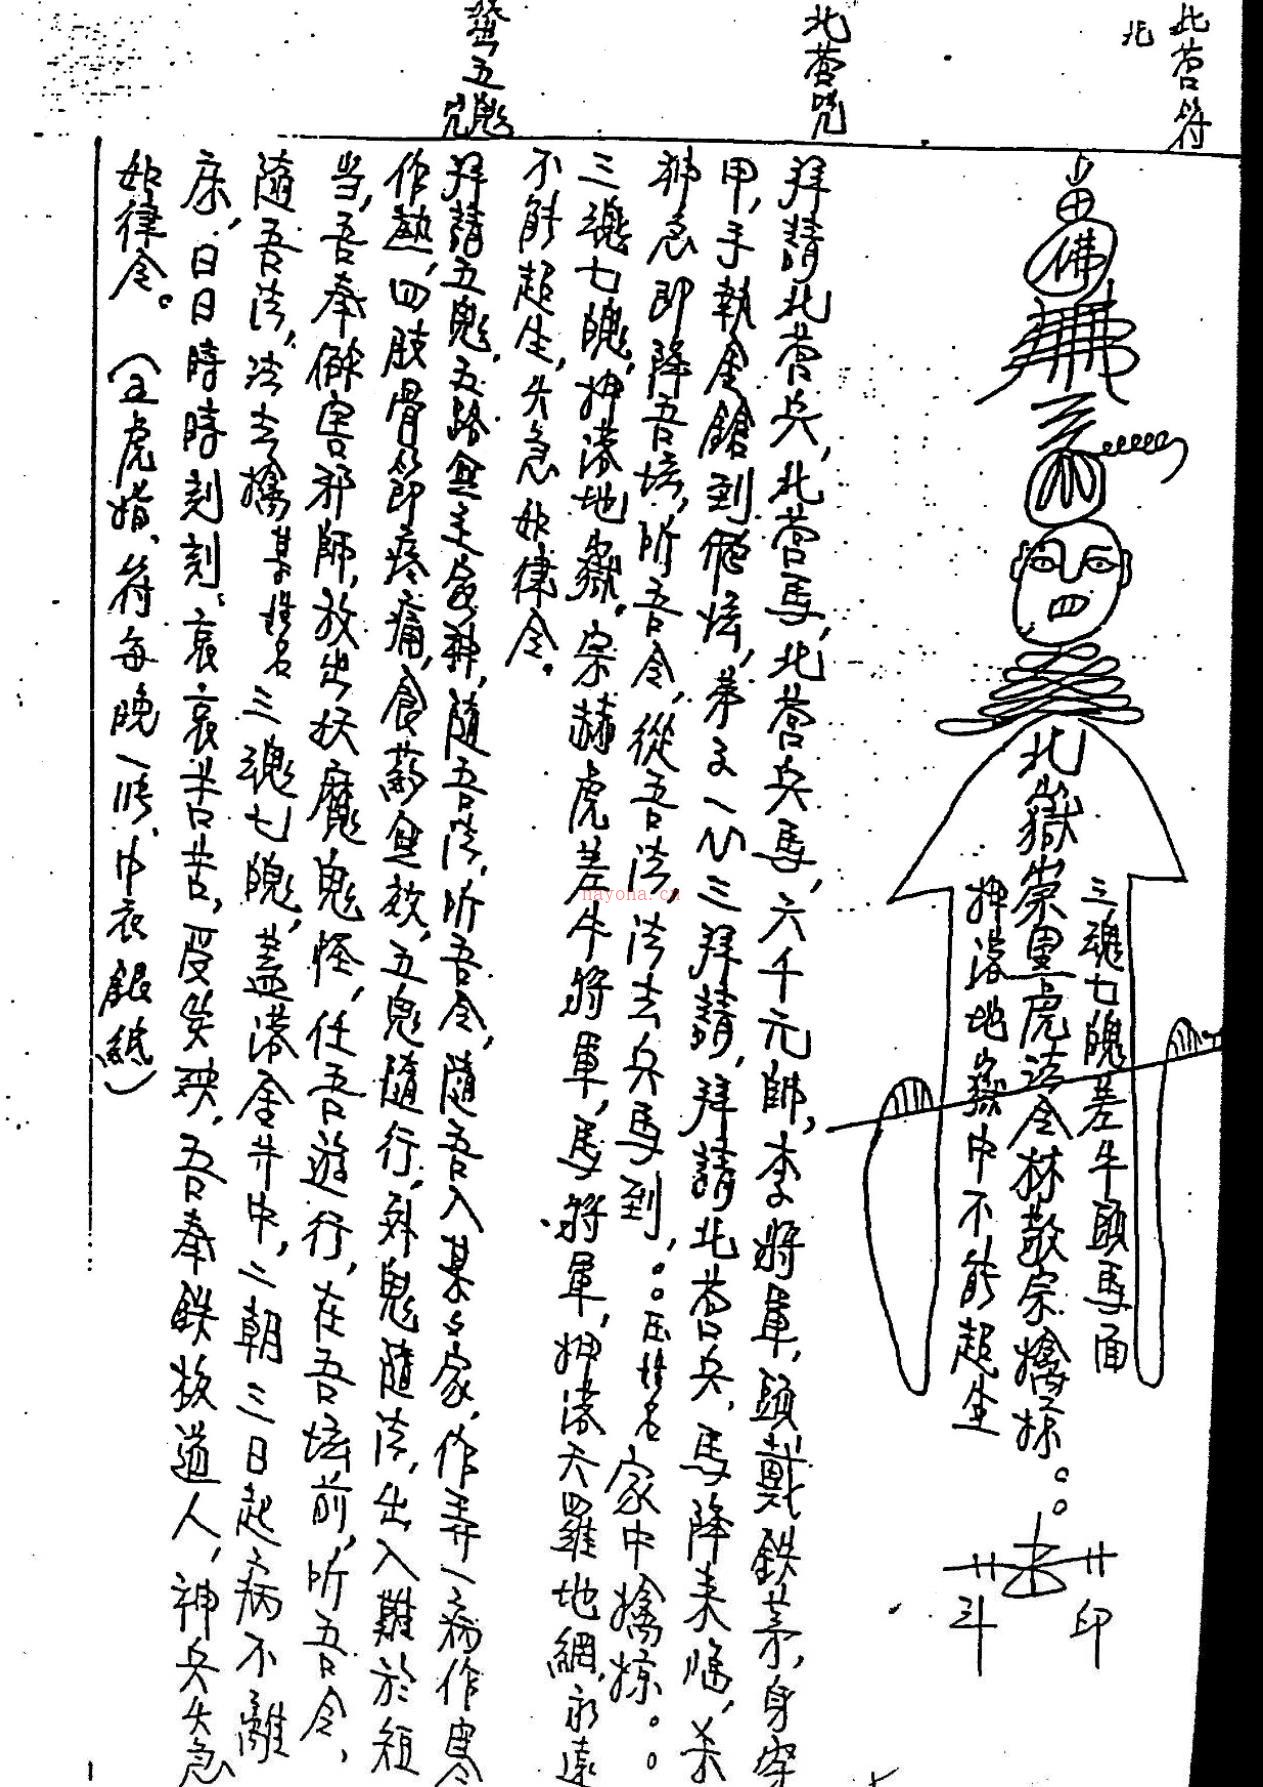 北營符
北
佛
北嶽崇黑虎法令林敬宗擒掠。。
三魂七魄差牛頭馬面
押落地嶽中不能超生
印
斗
北營咒
拜請北营兵,北营馬,北营兵馬,六千元帥,李將軍,頭戴鉄帽,身穿
甲,手执金鎗到偬坛,弟子一心三拜請,拜請北营兵,馬降来临,杀
神急即降吾坛,听吾令,從吾法法去兵馬到,。。压姓名家中擒掠。。
三魂七魄,押落地嶽。宗赫虎差牛將軍,馬將軍,押落天羅地網,永遠
不能超生,火急如律令。
五鬼咒
拜請五鬼,五路無主家神,隨吾法,听吾令,隨吾入某々家,作弄一病作寒
作熱,四肢骨節疼痛,食葯無效,五鬼隨行,邪鬼隨法,出入難於祖
当,吾奉僻害邪師,放出妖魔鬼怪,任吾遊行,在吾坛前,听吾令,
隨吾法,法去擒某姓名三魂七魄,蓋落金井中,二朝三日起病不離
床,日日時時刻刻,哀哀苦苦,受災殃,吾奉鉄板道人,神兵火急
如律令。(五虎指、符每晚一張、巾衣銀紙)
nayona.cn